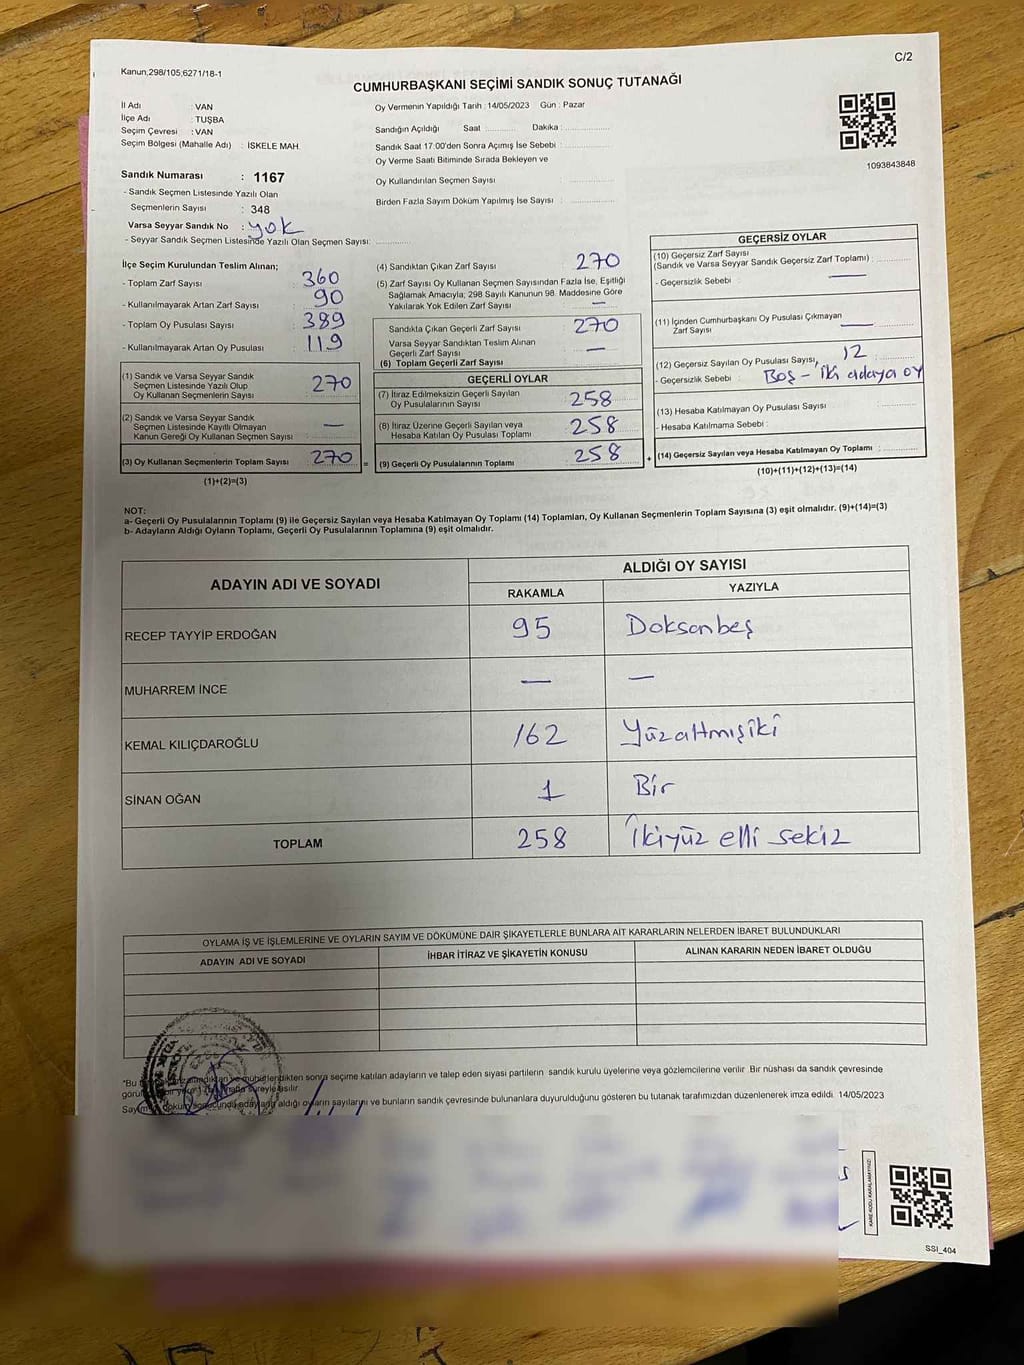 Kanun,298/105,6271/18-1
C/2
CUMHURBAŞKANI SEÇİMİ SANDIK SONUÇ TUTANAĞI
İl Adı : VAN
İlçe Adı : TUŞBA
Seçim Çevresi : VAN
Seçim Bölgesi (Mahalle Adı) : İSKELE MAH.
Oy Vermenin Yapıldığı Tarih : 14/05/2023 Gün : Pazar
Sandığın Açıldığı Saat ............ Dakika : ................
Sandık Saat 17:00'den Sonra Açımış İse Sebebi : ................
Oy Verme Saati Bitiminde Sırada Bekleyen ve
Oy Kullandırılan Seçmen Sayısı : ................
Birden Fazla Sayım Döküm Yapılmış İse Sayısı : ................
1093843848
Sandık Numarası : 1167
- Sandık Seçmen Listesinde Yazılı Olan
Seçmenlerin Sayısı : 348
Varsa Seyyar Sandık No : yok
- Seyyar Sandık Seçmen Listesinde Yazılı Olan Seçmen Sayısı: ............
İlçe Seçim Kurulundan Teslim Alınan;
- Toplam Zarf Sayısı : 360
- Kullanılmayarak Artan Zarf Sayısı : 90
- Toplam Oy Pusulası Sayısı : 389
- Kullanılmayarak Artan Oy Pusulası : 119
(1) Sandık ve Varsa Seyyar Sandık
Seçmen Listesinde Yazılı Olup
Oy Kullanan Seçmenlerin Sayısı : 270
(2) Sandık ve Varsa Seyyar Sandık
Seçmen Listesinde Kayılı Olmayan
Kanun Gereği Oy Kullanan Seçmen Sayısı : —
(3) Oy Kullanan Seçmenlerin Toplam Sayısı : 270
(1)+(2)=(3)
(4) Sandıktan Çıkan Zarf Sayısı : 270
(5) Zarf Sayısı Oy Kullanan Seçmen Sayısından Fazla İse, Eşitliği
Sağlamak Amacıyla; 298 Sayılı Kanunun 98. Maddesine Göre
Yakılarak Yok Edilen Zarf Sayısı : —
Sandıkta Çıkan Geçerli Zarf Sayısı : 270
Varsa Seyyar Sandıktan Teslim Alınan
Geçerli Zarf Sayısı : —
(6) Toplam Geçerli Zarf Sayısı
GEÇERLİ OYLAR
(7) İtiraz Edilmeksizin Geçerli Sayılan
Oy Pusulalarının Sayısı : 258
(8) İtiraz Üzerine Geçerli Sayılan veya
Hesaba Katılan Oy Pusulası Toplamı : 258
= (9) Geçerli Oy Pusulalarının Toplamı : 258
GEÇERSİZ OYLAR
(10) Geçersiz Zarf Sayısı
(Sandık ve Varsa Seyyar Sandık Geçersiz Zarf Toplamı) : ............
- Geçersizlik Sebebi : —
(11) İçinden Cumhurbaşkanı Oy Pusulası Çıkmayan
Zarf Sayısı : —
(12) Geçersiz Sayılan Oy Pusulası Sayısı, 12
- Geçersizlik Sebebi : Boş – iki adaya oy
(13) Hesaba Katılmayan Oy Pusulası Sayısı : ............
- Hesaba Katılmama Sebebi :
+ (14) Geçersiz Sayılan veya Hesaba Katılmayan Oy Toplamı : ............
(10)+(11)+(12)+(13)=(14)
NOT:
a- Geçerli Oy Pusulalarının Toplamı (9) ile Geçersiz Sayılan veya Hesaba Katılmayan Oy Toplamı (14) Toplamları, Oy Kullanan Seçmenlerin Toplam Sayısına (3) eşit olmalıdır. (9)+(14)=(3)
b- Adayların Aldığı Oyların Toplamı, Geçerli Oy Pusulalarının Toplamına (9) eşit olmalıdır.
ADAYIN ADI VE SOYADI
ALDIĞI OY SAYISI
RAKAMLA YAZIYLA
RECEP TAYYİP ERDOĞAN 95 Doksanbeş
MUHARREM İNCE — —
KEMAL KILIÇDAROĞLU 162 Yüzaltmışiki
SİNAN OĞAN 1 Bir
TOPLAM 258 İkiyüz elli sekiz
OYLAMA İŞ VE İŞLEMLERİNE VE OYLARIN SAYIM VE DÖKÜMÜNE DAİR ŞİKAYETLERLE BUNLARA AİT KARARLARIN NELERDEN İBARET BULUNDUKLARI
ADAYIN ADI VE SOYADI İHBAR İTİRAZ VE ŞİKAYETİN KONUSU ALINAN KARARIN NEDEN İBARET OLDUĞU
*Bu sonra seçime katılan adayların ve talep eden siyasi partilerin sandık kurulu üyelerine veya gözlemcilerine verilir. Bir nüshası da sandık çevresinde
süreyle asılır.
aldığı oyların sayılarını ve bunların sandık çevresinde bulunanlara duyurulduğunu gösteren bu tutanak tarafımızdan düzenlenerek imza edildi. 14/05/2023
KARE KODU KARALAMAYINIZ!
SSI_404